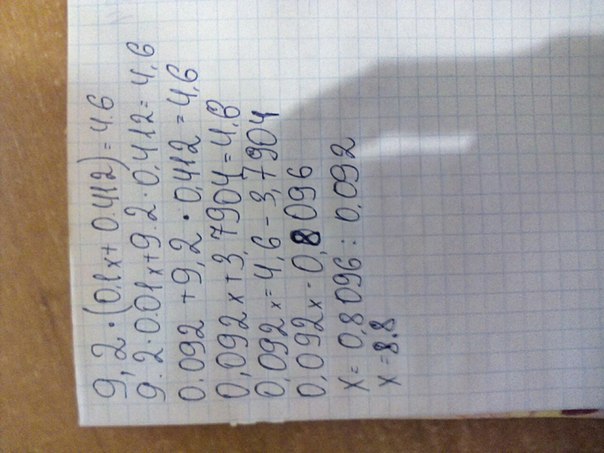 9,2·(0,1x+0.412)=4.6
9.2·0.01x+9.2·0,412=4,6
0.092+9,2·0,412=4,6
0,092x+3,7904=4,6
0,092x=4,6-3,7904
0,092x-0,8096
x=0,8096:0,092
x=8.8